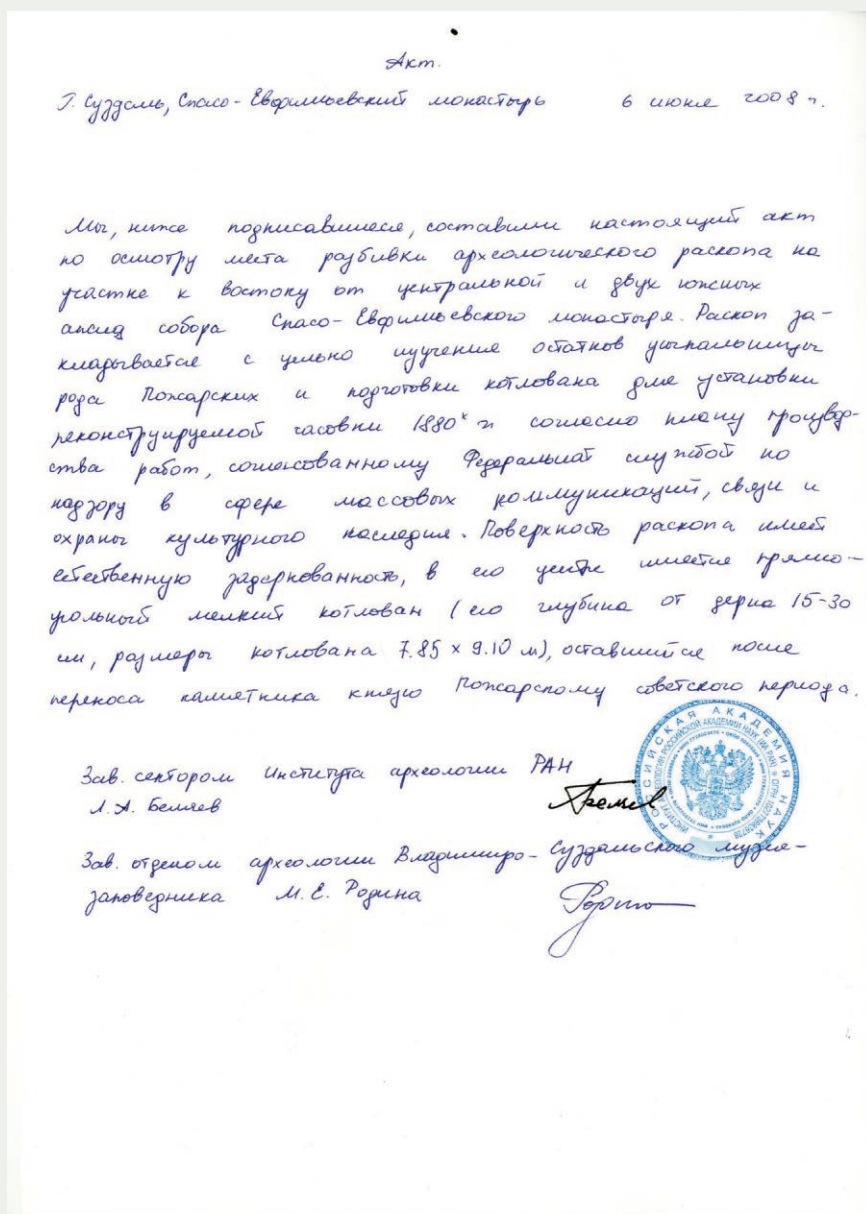 Акт.
г. Суздаль, Спасо-Евфимиевский монастырь 6 июня 2008 г.
Мы, ниже подписавшиеся, составили настоящий акт
по осмотру места разбивки археологического раскопа на
участке к востоку от центральной и двух южных
апсид собора Спасо-Евфимиевского монастыря. Раскоп за-
кладывается с целью изучения остатков усыпальницы
рода Пожарских и подготовки котлована для установки
реконструируемой часовни 1880х гг согласно плану производ-
ства работ, согласованному Федеральной службой по
надзору в сфере массовых коммуникаций, связи и
охраны культурного наследия. Поверхность раскопа имеет
естественную задернованность, в его центре имеется прямо-
угольный мелкий котлован (его глубина от дерна 15-30
см, размеры котлована 7.85 × 9.10 м), оставшийся после
переноса памятника князю Пожарскому советского периода.
Зав. сектором Института археологии РАН
Л. А. Беляев
РОССИЙСКАЯ АКАДЕМИЯ НАУК
Зав. отделом археологии Владимиро-Суздальского музея-
заповедника М. Е. Родина